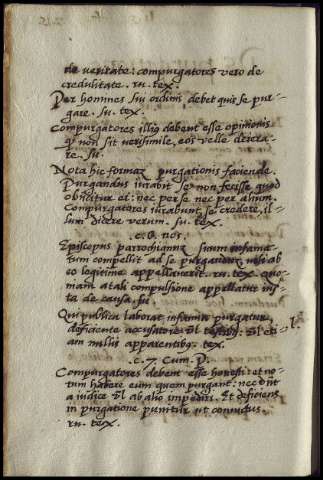 de veritate: compurgatores vero de
credulitate. ru. tex.
Per homines sui ordinis debet quis se pur-
gare. su. tex.
Compurgatores illius debent esse opinionis
q non sit verisimile, eos velle deiera-
re. su.
Nota hic formam purgationis faciende.
Purgandus iurabit se non fecisse quod
obiicitur ei: nec per se nec per alium.
Compurgatores iurabunt se credere, il-
lum dicere verum. su. tex.
c. 6. nos.
Episcopus parrochianum suum infama-
tum compellit ad se purgandum, nisi ab
eo legitime appellaverit. ru. tex. quo-
niam a tali compulsione appellatur ius-
ta de causa. su.
Qui publica laborat infamia purgatur,
deficiente accusatore vl testibus: vl eti-
am nullis apparentibus. tex.
c. 7. Cum. P.
Compurgatores debent esse honesti: et no-
tum habere eum quem purgant: nec debent
a iudice vl ab alio impediri. Et deficiens
in purgatione punitur ut convictus.
ru. tex.